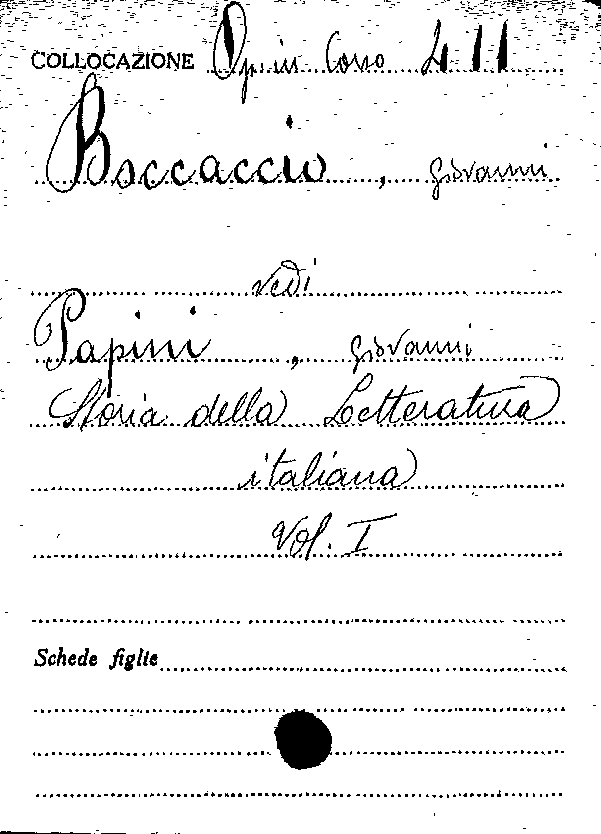 COLLOCAZIONE Op. in Corso 411
Boccaccio, Giovanni
vedi
Papini, Giovanni
Storia della Letteratura
italiana
Vol. I
Schede figlie